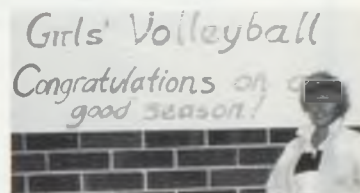 Girls' Volleyball
Congratulations on a
good season!